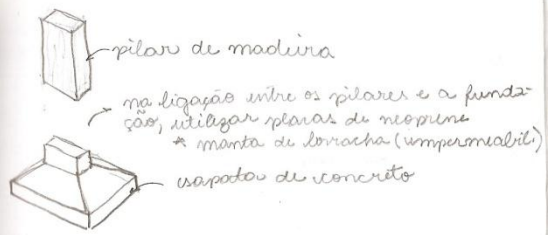 pilar de madeira
na ligação entre os pilares e a funda-
ção, utilizar placas de neoprene
* manta de borracha (impermeabil.)
sapata de concreto